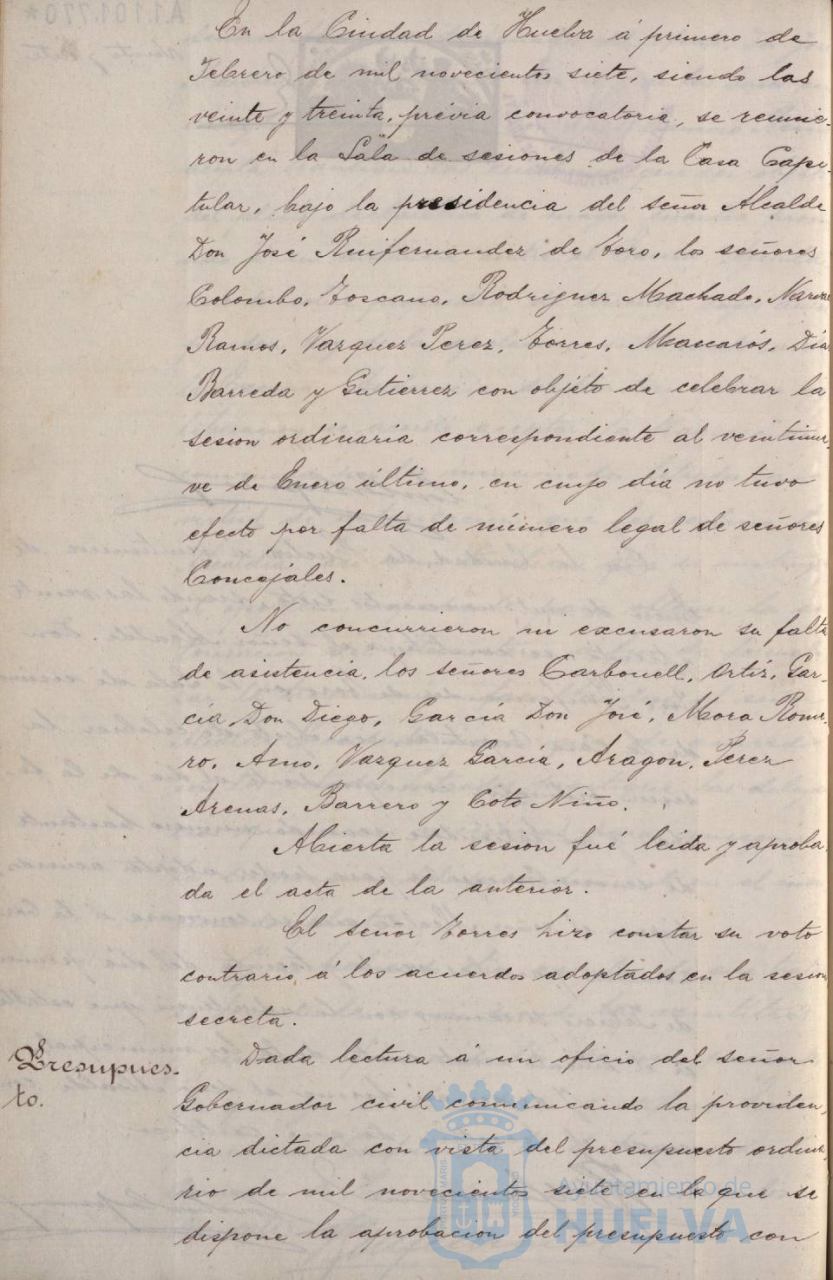 En la Ciudad de Huelva á primero de
Febrero de mil novecientos siete, siendo las
veinte y treinta, prévia convocatoria, se reunie-
ron en la Sala de sesiones de la Casa Capi-
tular, bajo la presidencia del señor Alcalde
Don José Ruifernandez de Toro, los señores
Colombo, Toscano, Rodriguez Machado,
Ramos, Vazquez Perez, Torres, Mascarós, Díaz
Barreda y Gutierrez con objeto de celebrar la
sesion ordinaria correspondiente al veintinue-
ve de Enero último, en cuyo día no tuvo
efecto por falta de número legal de señores
Concejales.
No concurrieron ni excusaron su falta
de asistencia, los señores Carbonell, Ortíz, Gar-
cía Don Diego, García Don José, Mora Rome-
ro, Amo, Vazquez García, Aragon, Perez
Arenas, Barrero y Coto Niño.
Abierta la sesion fué leida y aproba-
da el acta de la anterior.
El señor Torres hizo constar su voto
contrario á los acuerdos adoptados en la sesion
secreta.
Presupues-
to.
Dada lectura á un oficio del señor
Gobernador civil comunicando la providen-
cia dictada con vista del presupuesto ordina-
rio de mil novecientos siete en la que se
dispone la aprobacion del presupuesto con
Ayuntamiento de
HUELVA